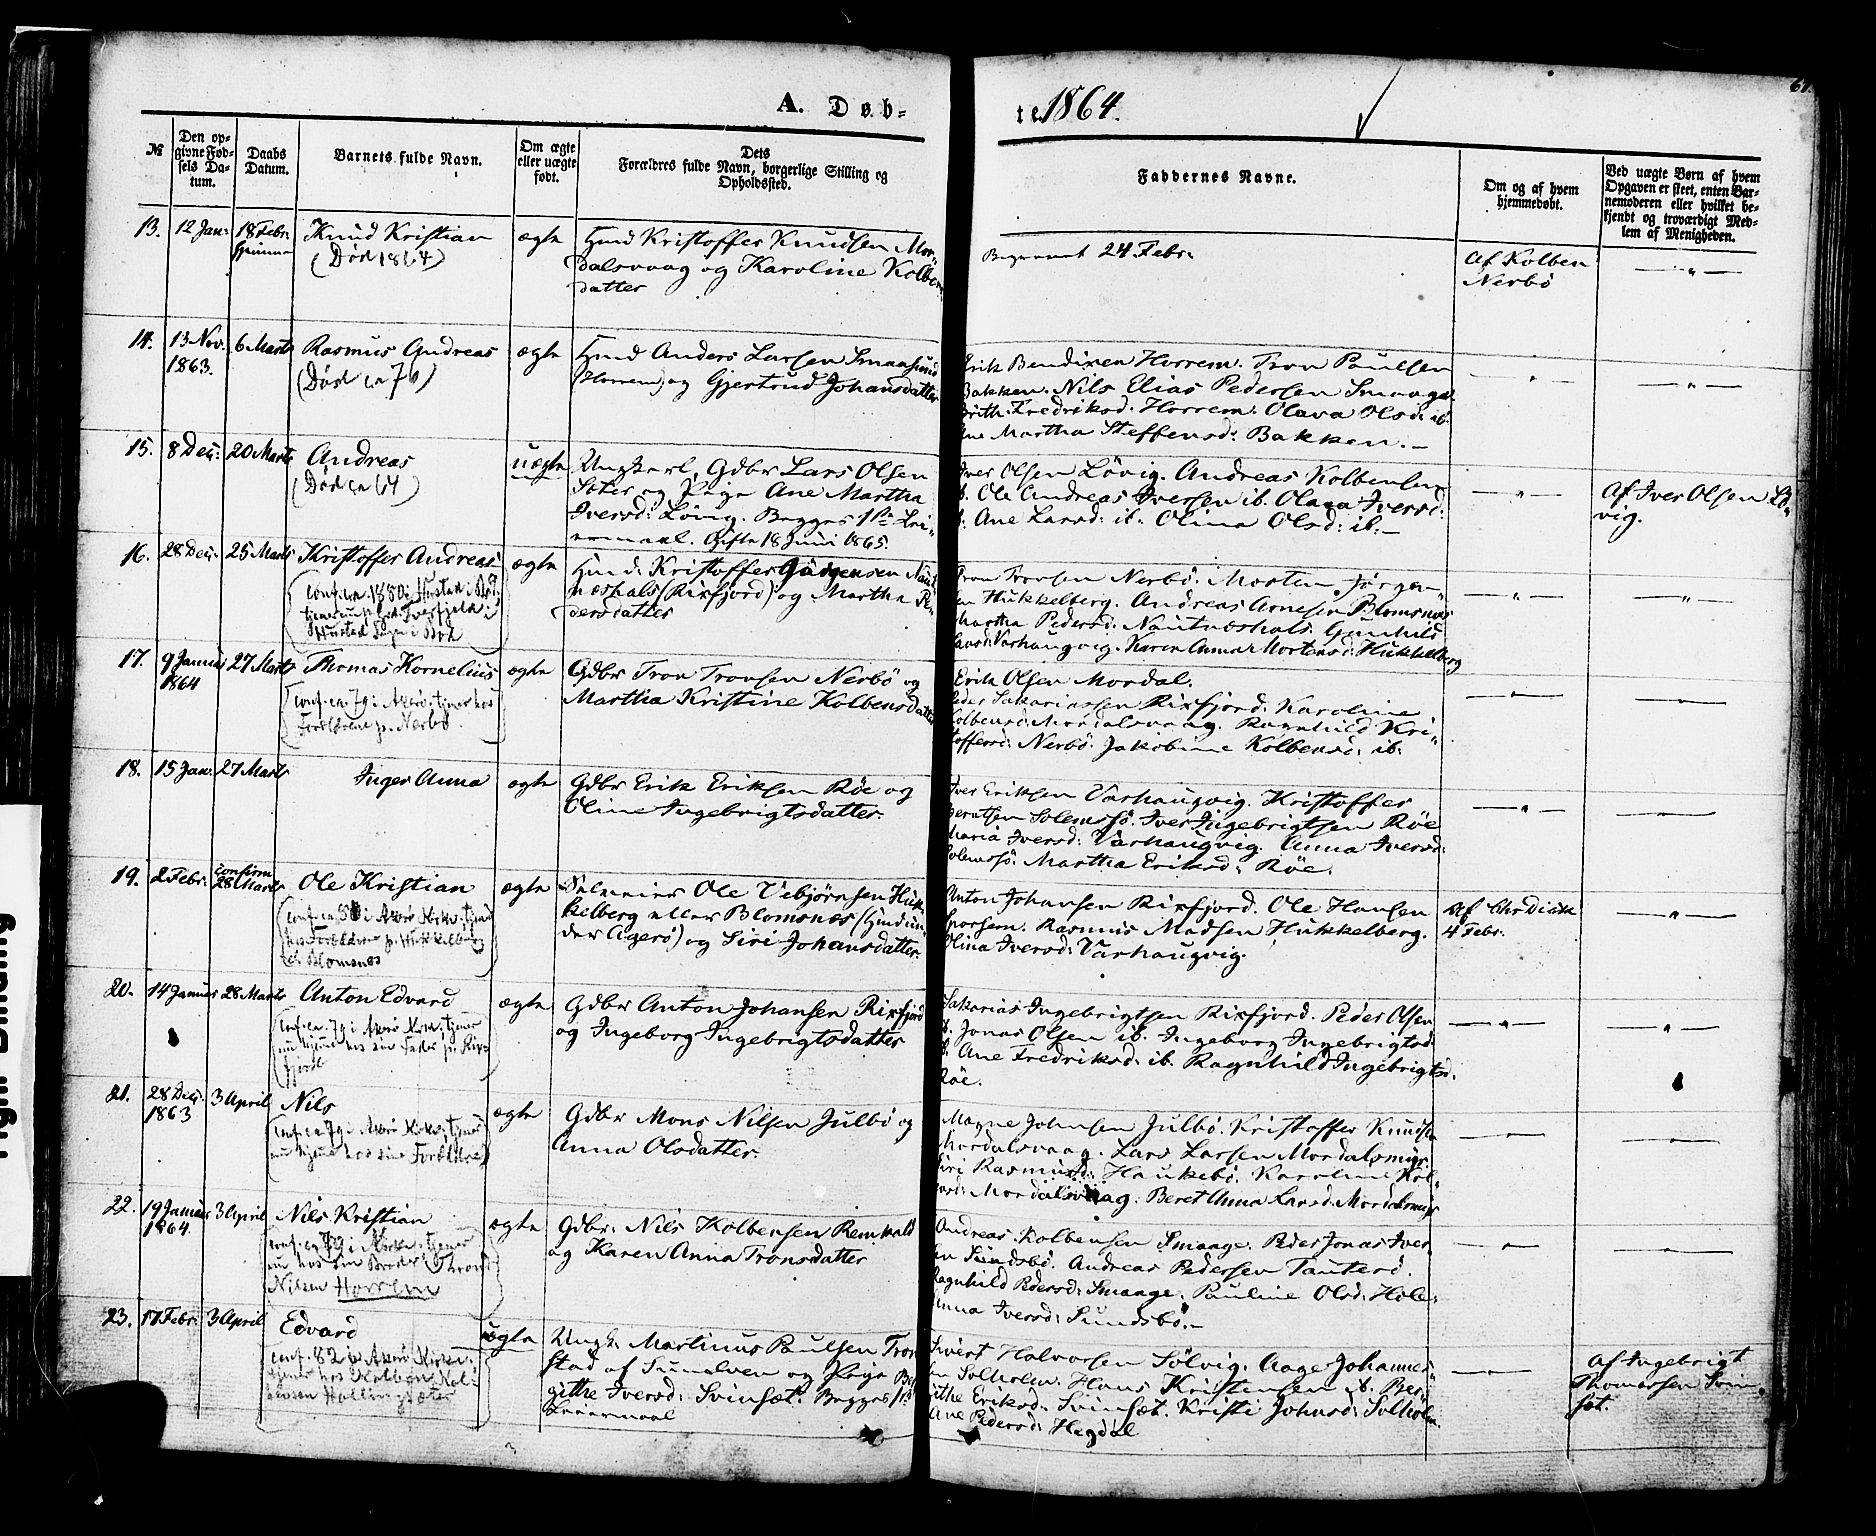 A. Døb-
te 1864.
No
Den opgivne Fødsels Datum.
Daabs Datum.
Barnets fulde Navn.
Om ægte eller uægte født.
Dets Forældres fulde Navn, borgerlige Stilling og Opholdssted.
Faddernes Navne.
Om og af hvem hjemmedøbt.
Ved uægte Børn af hvem Opgaven er skeet, enten Barnemoderen eller hvilket bekjendt og troværdigt Medlem af Menigheden.
13. 12 Jan: 18 Febr: hjemme
Knud Kristian
(Död 1864)
ægte
Hmd Kristoffer Knudsen Mor-
dalsvaag og Karoline Kolbens
datter
Begravet 24 Febr:
Af Kolben
Nerbö
14. 13 Nov. 1863. 6 Marts
Rasmus Andreas
(Död ca 76)
ægte
Hmd Anders Larsen Smaasund
(Horrem) og Gjertrud Johansdatter
Erik Bendixen Horrem. Tron Paulsen
Bakken. Nils Elias Pedersen Smaage.
Brith Fredriksd. Horrem. Olava Olsd: ib.
Ane Martha Steffensd: Bakken.
15. 8 Dec: 20 Marts
Andreas
(Död ca 64)
uægte
Ungkarl, Gdbr Lars Olsen
Sæter og Pige Ane Martha
Iversd: Lövig. Begges 1ste Lei-
ermaal. Gifte 18 Juni 1865.
Iver Olsen Lövig. Andreas Kolbensen
ib. Ole Andreas Iversen ib. Olava Iversd:
ib. Ane Larsd: ib: Olina Olsd: ib:
Af Iver Olsen Lö-
vig.
16. 28 Dec: 25 Marts
Kristoffer Andreas
(conf. ca. 1880 i Hustad i Bod
Hustad Sogn i Bod
ægte
Hmd: Kristoffer Jörgensen Naut-
næshals (Rixfjord) og Martha Pe-
dersdatter
Tron Tronsen Nerbö. Morten Jörgen-
sen Hukkelberg. Andreas Arnesen Blomsnæs
Martha Pedersd: Nautnæshals. Gunhild
Larsd: Varhaugvig. Karen Anna Mortensd: Hukkelberg
17. 9 Januar 1864 27 Marts
Thomas Kornelius
(conf. ca. 79 i Akerö; tjener hos
Forældrene p. Nerbö.
ægte
Gdbr Tron Tronsen Nerbö og
Martha Kristine Kolbensdatter
Erik Olsen Mordal.
Peder Sakariassen Rixfjord. Karoline
Kolbensd: Mordalsvaag. Ragnhild Kri-
stoffersd: Nerbö. Jakobine Kolbensd: ib.
18. 15 Jan: 27 Marts
Inger Anna
ægte
Gdbr Erik Eriksen Röe og
Oline Ingebrigtsdatter.
Iver Eriksen Varhaugvig. Kristoffer
Berntsen Solemsö. Iver Ingebrigtsen Röe
Maria Iversd: Varhaugvig. Anna Iversd:
Solemsö: Martha Eriksd: Röe.
19. 2 Febr: confirm 28 Marts
Ole Kristian
(conf. ca. 80 i Akerö Kirke; tjener
hos Forældrene p. Hukkelberg
el. Blomsnæs
ægte
Ole Vebjörnsen Huk-
kelberg eller Blomsnæs (Hmd un-
der Agerö) og Siri Johansdatter.
Anton Johansen Rixfjord. Ole Hansen
Sporsem. Rasmus Madsen Hukkelberg.
Olina Iversd: Varhaugvig.
Af Chr Dick
4 Febr.
20. 14 Januar 28 Marts
Anton Edvard
(conf. ca. 79 i Akerö Kirke; tjener
nu hjemme hos sin Fader p. Rix-
fjord
ægte
Gdbr Anton Johansen Rixfjord
og Ingeborg Ingebrigtsdatter
Sakarias Ingebrigtsen Rixfjord. Peder Olsen
ib. Jonas Olsen ib. Ingeborg Ingebrigtsd:
ib. Ane Fredriksd: ib. Ragnhild Ingebrigtsd:
Röe.
21. 28 Dec: 1863 3 April
Nils
(conf. ca 79 i Akerö Kirke; tjener
nu hjemme hos sine Forældre)
ægte
Gdbr Mons Nilsen Julbö og
Anna Olsdatter.
Magne Johnsen Julbö. Kristoffer Knudsen
Mordalsvaag. Lars Larsen Mordalsmyr
Siri Rasmusd: Haukebö. Karoline Kol-
bensd: Mordalsvaag. Beret Anna Larsd: Mordalsmyr
22. 19 Januar 1864. 3 April
Nils Kristian
(conf. ca 79 i Akerö Kirke; tjener
nu hos sin Broder (Thrond
Nilsen Horrem
ægte
Gdbr: Nils Kolbensen Remkald
og Karen Anna Tronsdatter
Andreas Kolbensen Smaage. Peder Jonas Iver-
sen Sundsbö. Andreas Pedersen Tauterö.
Ragnhild Pedersd: Smaage. Pauline Olsd: Hole.
Anna Iversd: Sundsbö.
23. 17 Febr: 3 April
Edvard
(conf. 82 i Akerö Kirke;
tjener hos Kolben Kol-
bensen Hallingsæter
uægte
Ungk: Martinus Paulsen Tron
stad af Sunelven og Pige Be-
githe Iversd: Svinsæt. Begges 1ste
Leiermaal
Sivert Halvorsen Sölvig. Aage Johannes-
sen Solholm. Hans Kristensen ib. Ber-
githe Eriksd: Svinsæt. Kristi Johnsd: Solholm
Ane Pedersd: Hegdal
Af Ingebrigt
Thomassen Svin-
sæt.